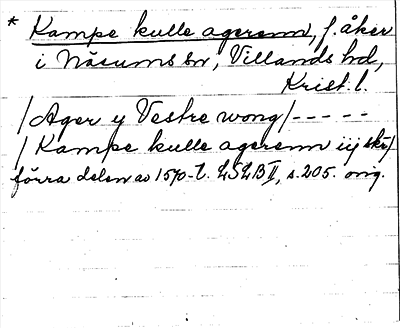 * Kampe kulle agerenn, f. åker
i Näsums sn, Villands hd,
Krist. l.
/Ager y Vestre wong/-----
/Kampe kulle agerenn iij skr/
förra delen av 1570-t. LSLB II, s. 205. orig.